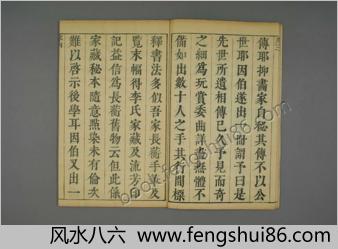 傳耶抑畫家自秘其傳不以公
世耶因伯遂出一帙謂予曰是
先世所遺相傳已久予見而奇
之細為玩賞委曲詳盡無體不
備如出數十人之手其行間標
釋書法多似吾家長蘅手筆及
覽末幅得李氏家藏及流芳印
記益信為長蘅舊物云但此係
家藏秘本隨意點染未有倫次
難以啓示後學耳因伯又出一
风水八六 www.fengshui86.com